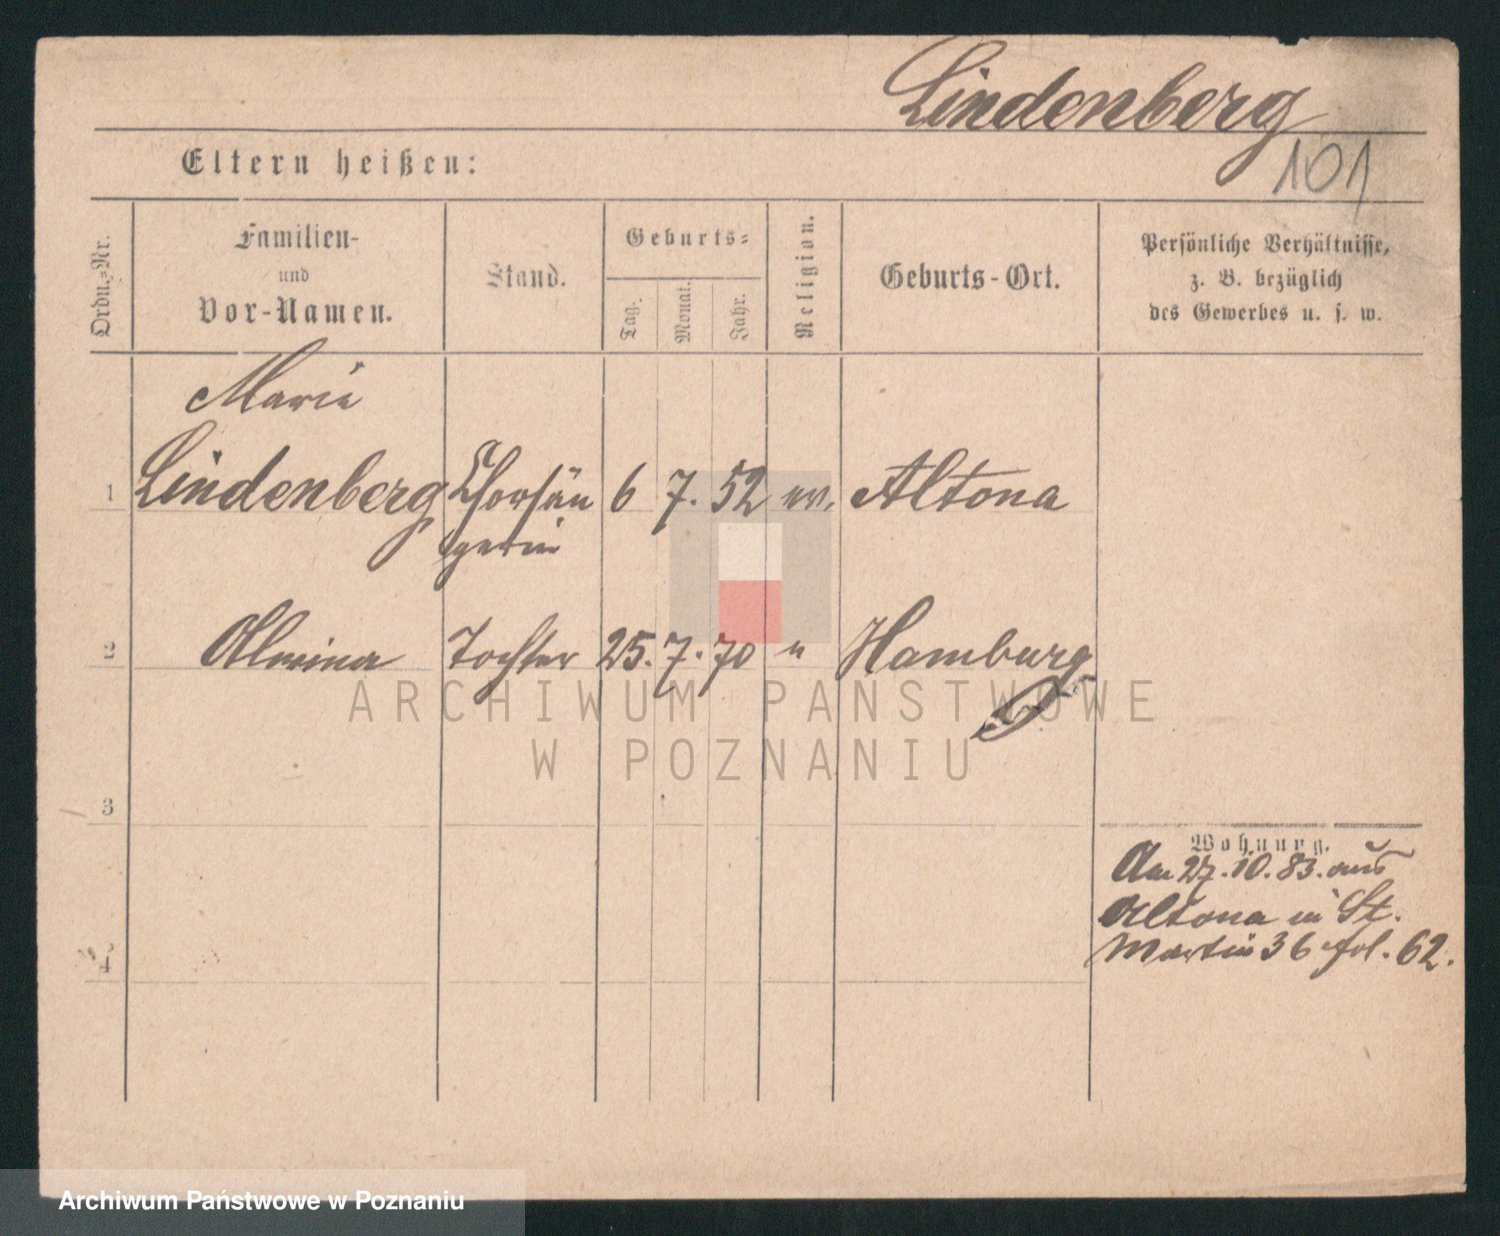 Lindenberg
101
Eltern heißen:
Ordn.-Nr.
Familien-
und
Vor-Namen.
Stand.
Geburts-
Tag.
Monat.
Jahr.
Religion.
Geburts-Ort.
Persönliche Verhältnisse,
z. B. bezüglich
des Gewerbes u. s. w.
Marie
1 Lindenberg Chorsän 6 7. 52 ev. Altona
gerin
2 Olmina Tochter 25. 7. 70 " Hamburg
ARCHIWUM PAŃSTWOWE
W POZNANIU
3
Wohnung.
Am 27. 10. 83. aus
Altona in St.
Martin 36 fol. 62.
4
Archiwum Państwowe w Poznaniu